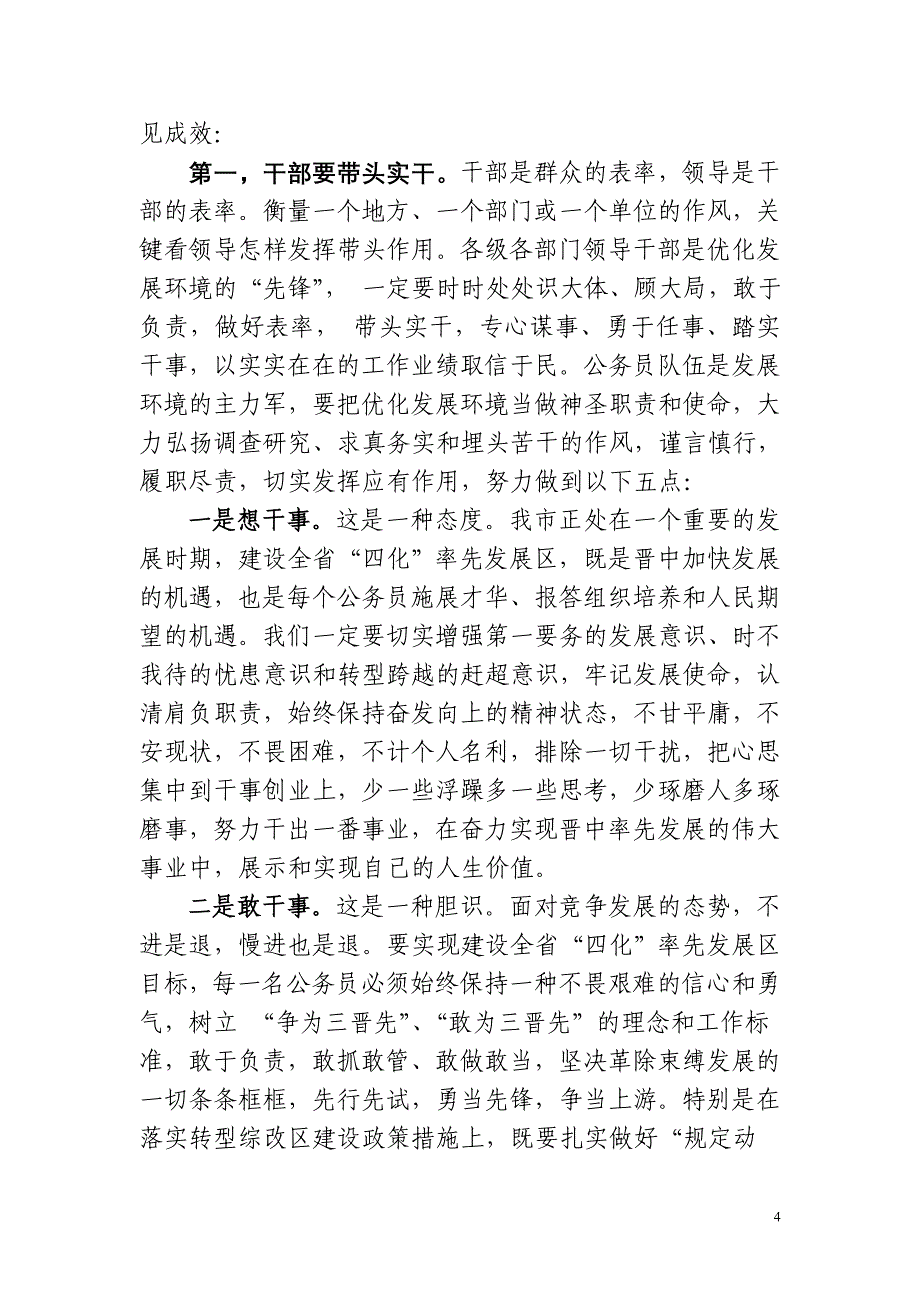 见成效：
第一，干部要带头实干。干部是群众的表率，领导是干
部的表率。衡量一个地方、一个部门或一个单位的作风，关
键看领导怎样发挥带头作用。各级各部门领导干部是优化发
展环境的“先锋”， 一定要时时处处识大体、顾大局，敢于
负责，做好表率， 带头实干，专心谋事、勇于任事、踏实
干事，以实实在在的工作业绩取信于民。公务员队伍是发展
环境的主力军，要把优化发展环境当做神圣职责和使命，大
力弘扬调查研究、求真务实和埋头苦干的作风，谨言慎行，
履职尽责，切实发挥应有作用，努力做到以下五点：
一是想干事。这是一种态度。我市正处在一个重要的发
展时期，建设全省“四化”率先发展区，既是晋中加快发展
的机遇，也是每个公务员施展才华、报答组织培养和人民期
望的机遇。我们一定要切实增强第一要务的发展意识、时不
我待的忧患意识和转型跨越的赶超意识，牢记发展使命，认
清肩负职责，始终保持奋发向上的精神状态，不甘平庸，不
安现状，不畏困难，不计个人名利，排除一切干扰，把心思
集中到干事创业上，少一些浮躁多一些思考，少琢磨人多琢
磨事，努力干出一番事业，在奋力实现晋中率先发展的伟大
事业中，展示和实现自己的人生价值。
二是敢干事。这是一种胆识。面对竞争发展的态势，不
进是退，慢进也是退。要实现建设全省“四化”率先发展区
目标，每一名公务员必须始终保持一种不畏艰难的信心和勇
气，树立 “争为三晋先”、“敢为三晋先”的理念和工作标
准，敢于负责，敢抓敢管、敢做敢当，坚决革除束缚发展的
一切条条框框，先行先试，勇当先锋，争当上游。特别是在
落实转型综改区建设政策措施上，既要扎实做好“规定动
4